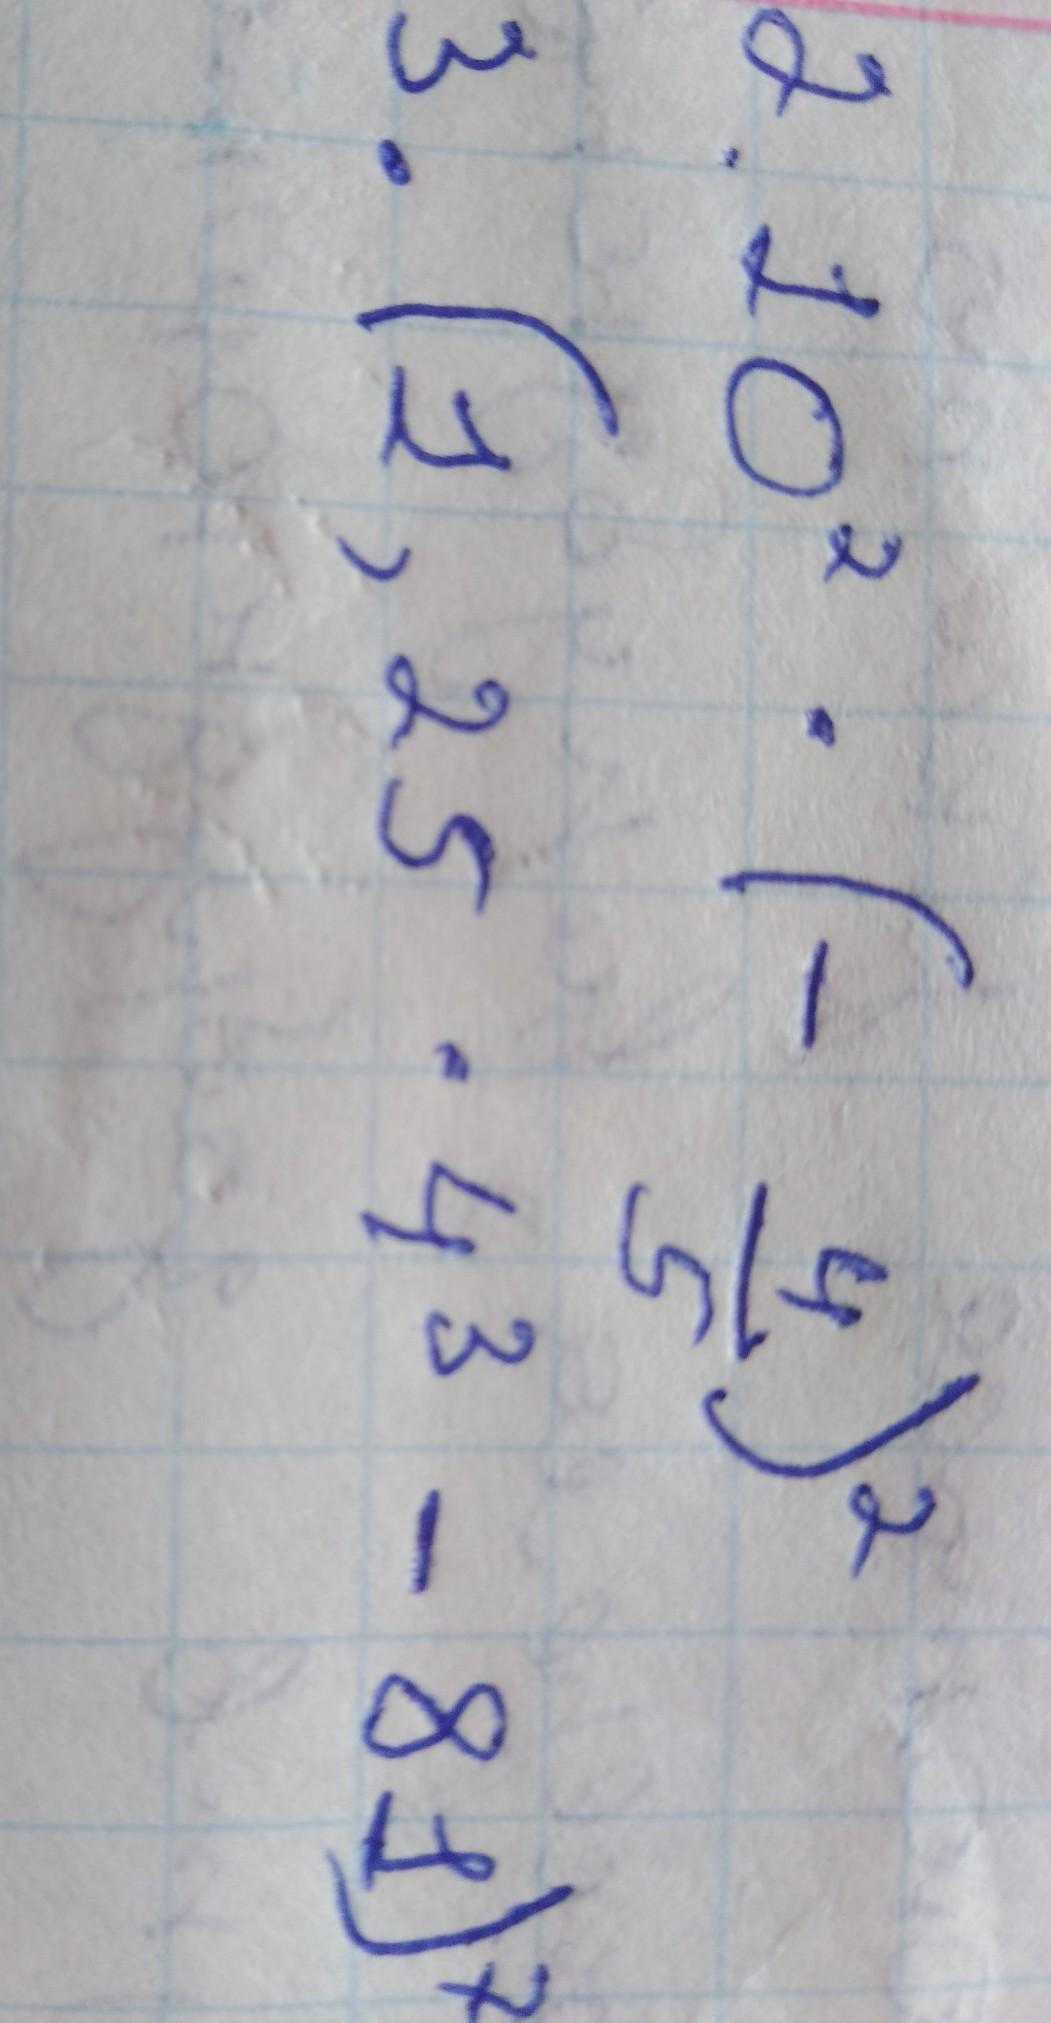 2. 10² · (- 4/5)²
3. (1,25 · 4³ - 81)⁷